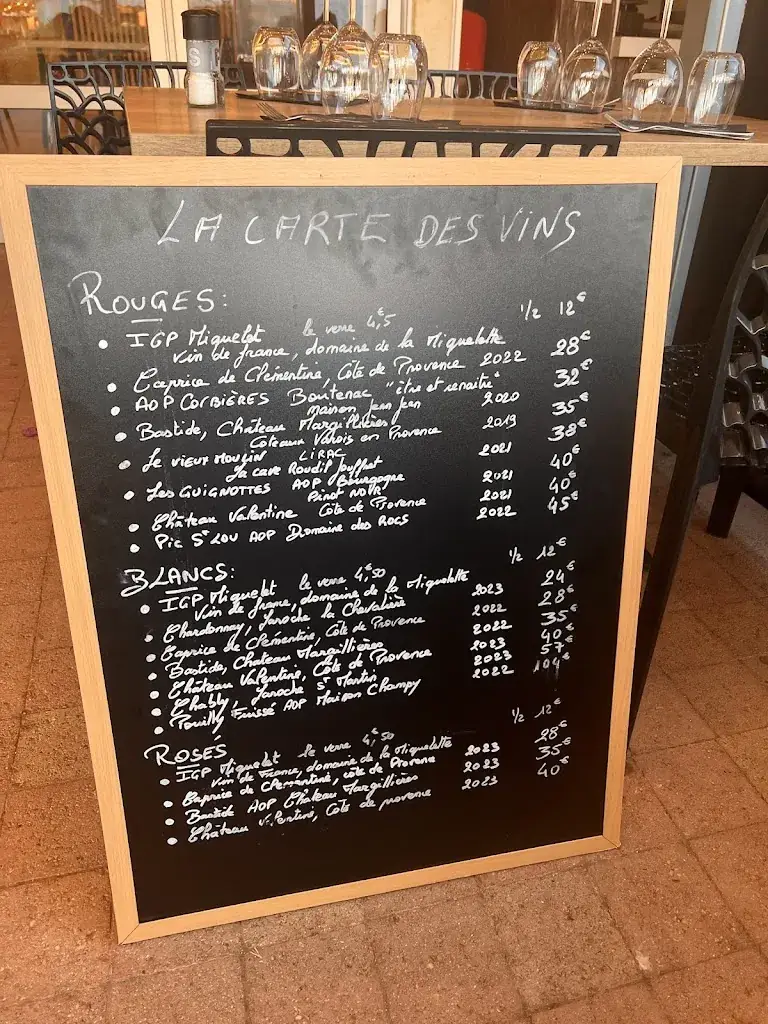 S
LA CARTE DES VINS
ROUGES:
• IGP Miquelet le verre 4,€5 1/2 12€
Vin de france, domaine de la Miquelette
• Caprice de Clémentine, Côte de Provence 2022 28€
• AOP CORBIÈRES Boutenac "être et renaitre" 32€
Maison Jean Jean 2020
• Bastide, Château Margillières 35€
Coteaux Varois en Provence 2019
• Le VIEUX MOULIN LIRAC 38€
La cave Roudil Jouffret 2021
• Les GUIGNOTTES AOP Bourgogne 40€
Pinot NOIR 2021
• Château Valentine Côte de Provence 2021 40€
• Pic St LOU AOP Domaine des ROCS 2022 45€
BLANCS:
• IGP Miquelet le verre 4,€50 1/2 12€
Vin de france, domaine de la Miquelette
• Chardonnay, Laroche la Chevalière 2023 24€
• Caprice de Clémentine, Côte de Provence 2022 28€
• Bastide, Chateau Margillières 2022 35€
• Château Valentine, Côte de Provence 2023 40€
• Chably, Laroche St Martin 2023 57€
• Pouilly Fuissé AOP Maison Champy 2022 104€
ROSÉS
• IGP Miquelet le verre 4,€50 1/2 12€
Vin de France, domaine de la Miquelette
• Caprice de Clementine, côte de Provence 2023 28€
• Bastide AOP Chateau Margillières 2023 35€
• Château Valentine, Côte de provence 2023 40€